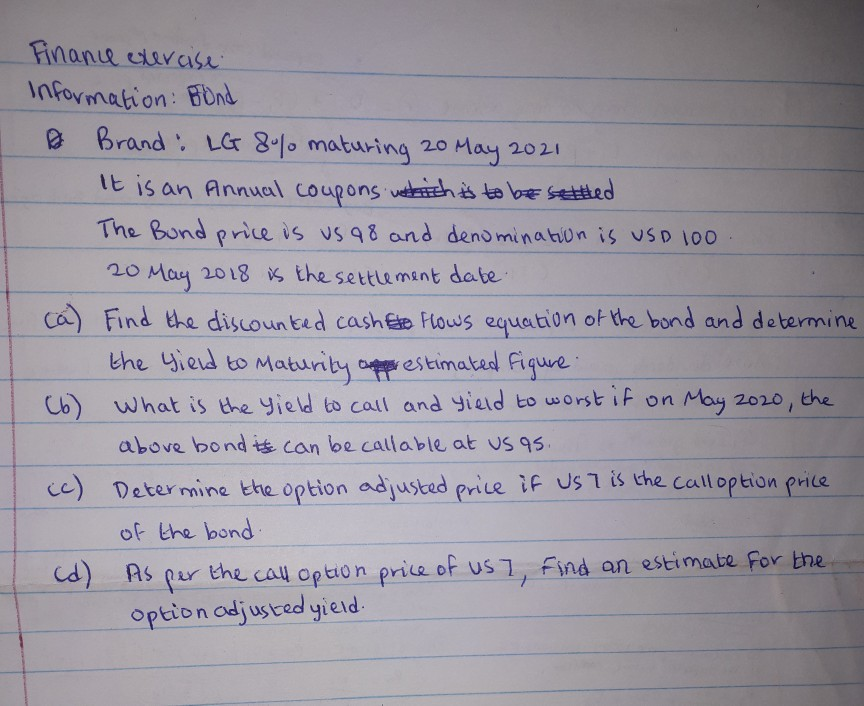 Finance exercise.
Information: Bond
Brand: LG 8% maturing 20 May 2021
It is an Annual coupons which is to be settled
The Bond price is US 98 and denomination is USD 100.
20 May 2018 is the settlement date.
(a) Find the discounted cash flows equation of the bond and determine
the Yield to Maturity estimated figure.
(b) What is the Yield to call and yield to worst if on May 2020, the
above bond is can be callable at US 95.
(c) Determine the option adjusted price if US 7 is the call option price
of the bond.
(d) As per the call option price of US 7, Find an estimate for the
option adjusted yield.